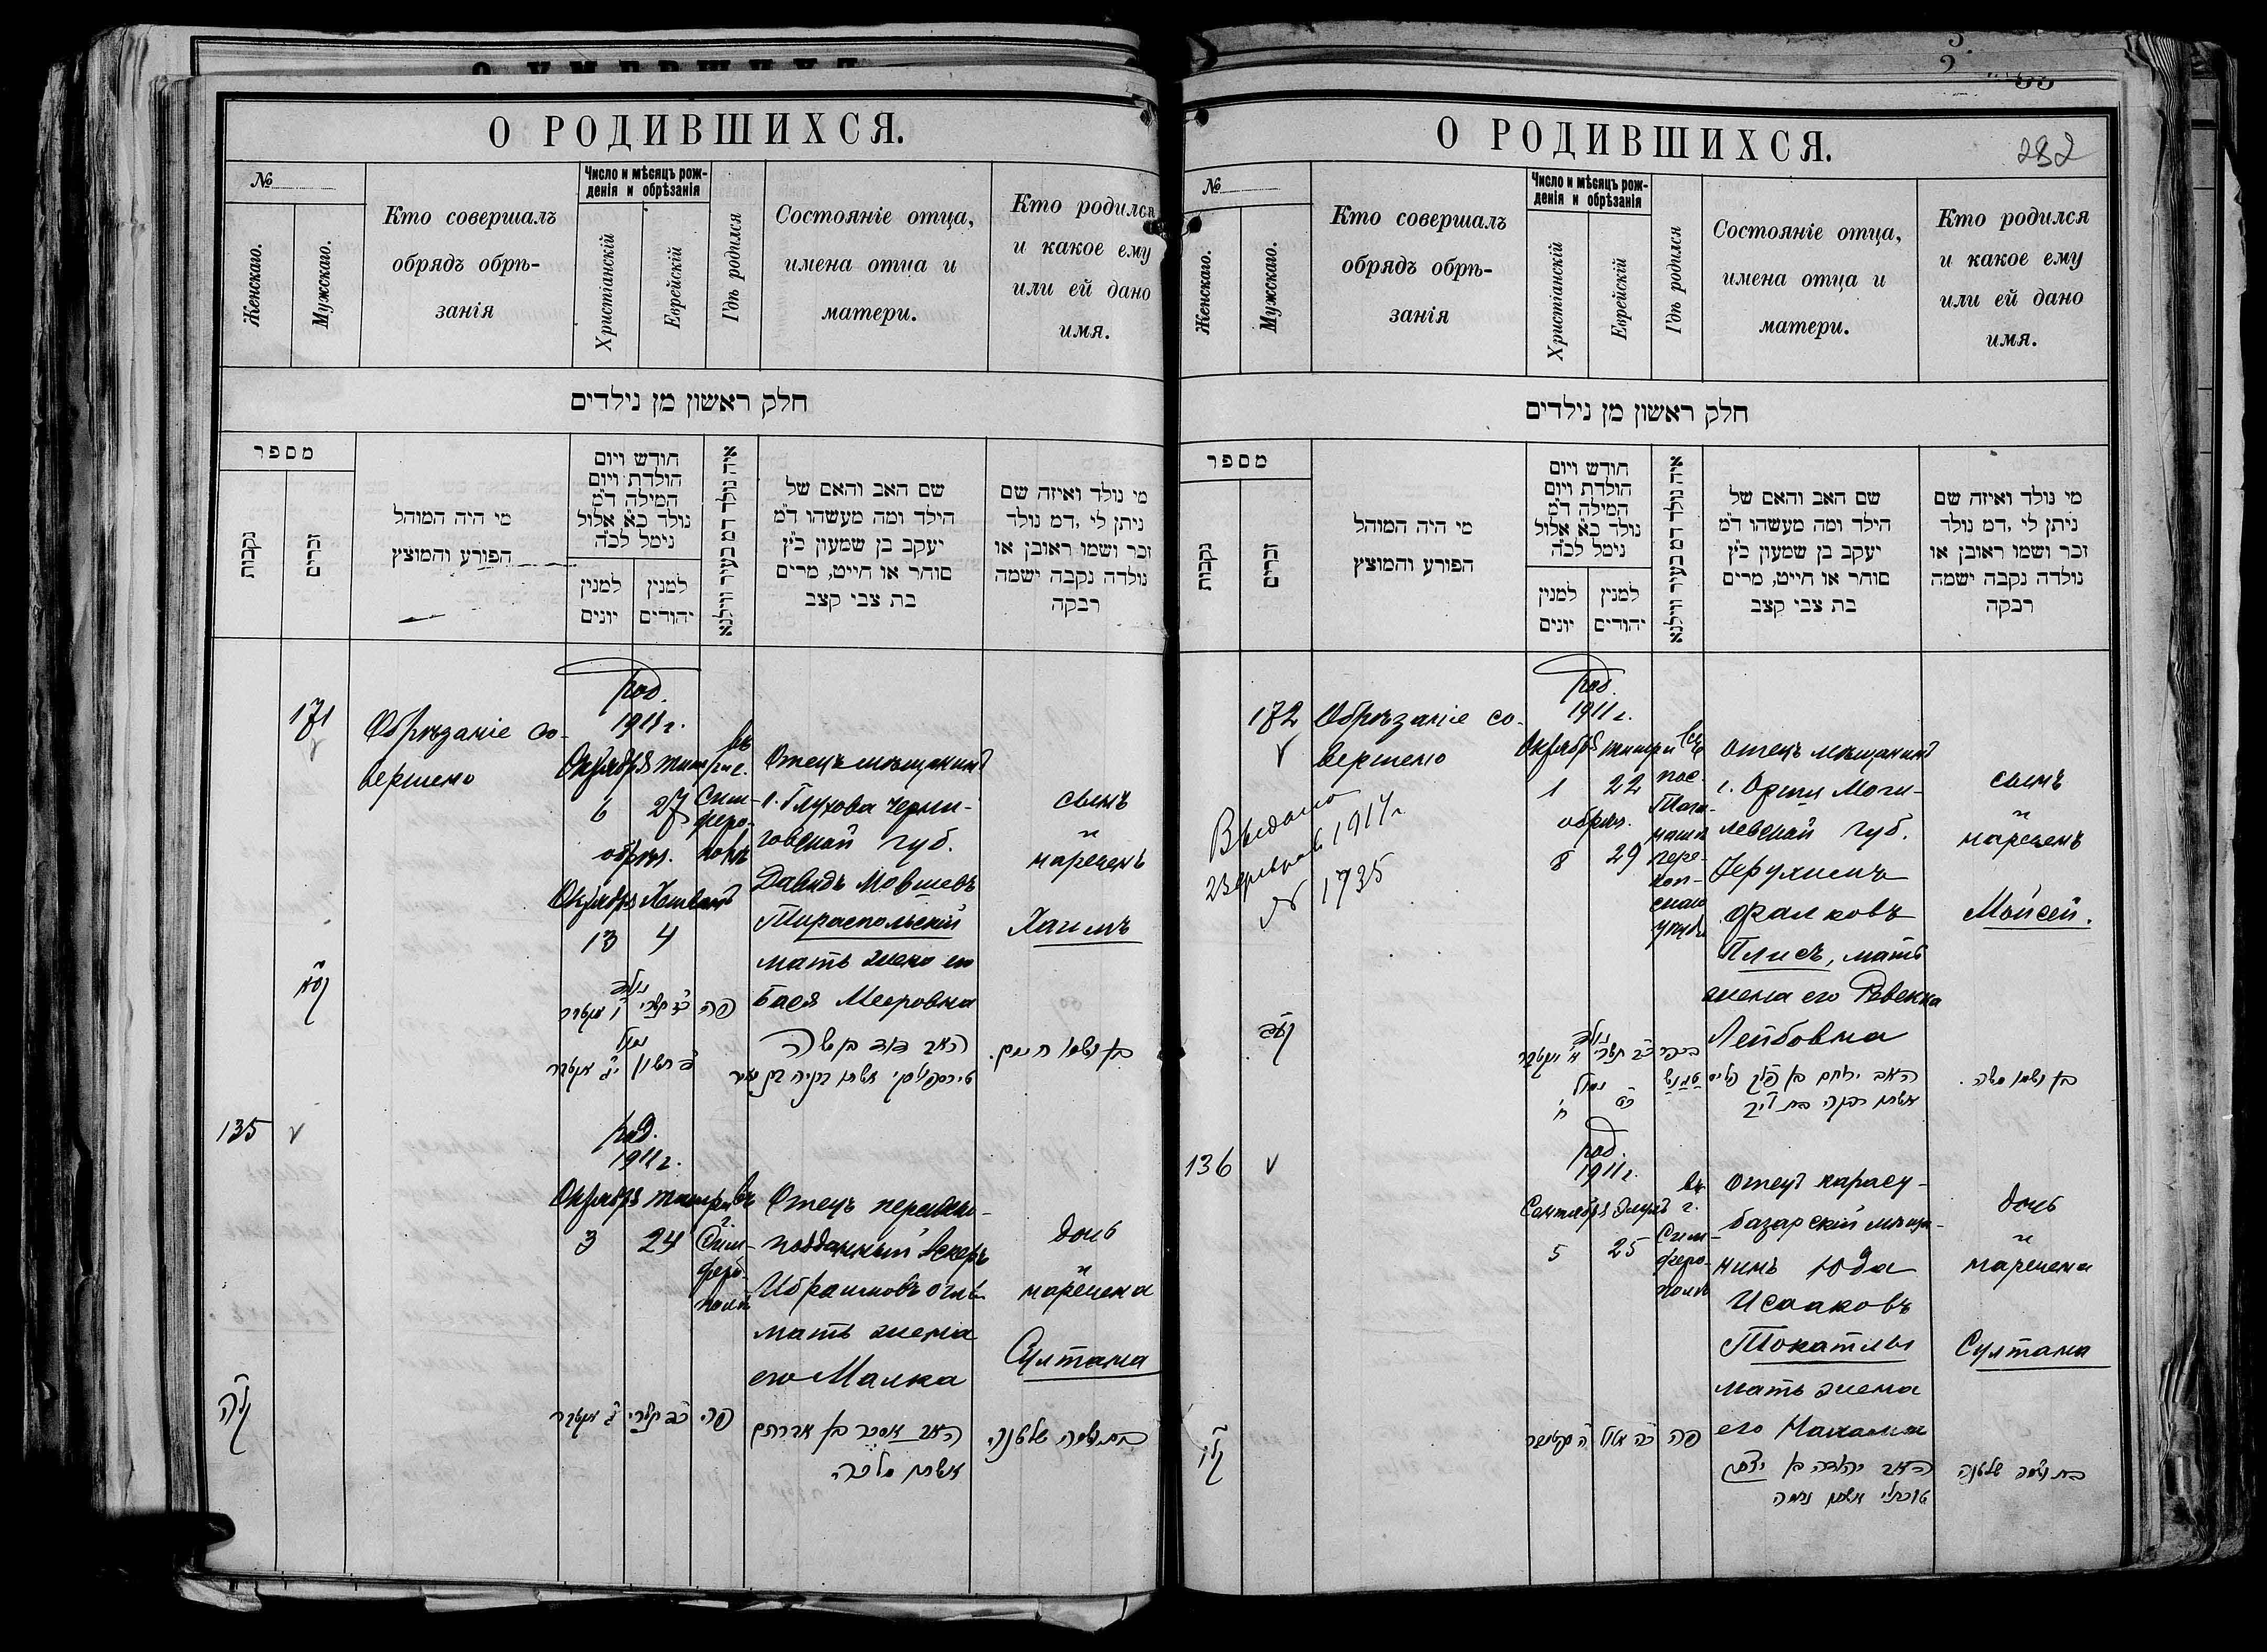 О РОДИВШИХСЯ.
№
Женскаго.
Мужскаго.
Кто совершалъ
обрядъ обрѣ-
занія
Число и мѣсяцъ рож-
денія и обрѣзанія
Христіанскій
Еврейскій
Гдѣ родился
Состояніе отца,
имена отца и
матери.
Кто родился
и какое ему
или ей дано
имя.
חלק ראשון מן נילדים
מספר
נקבות
זכרים
מי היה המוהל
הפורע והמוצץ
חודש ויום
הולדת ויום
המילה ד״מ
נולד כ״א אלול
נימל לכ״ה
למנין
יונים
למנין
יהודים
איה נולד דם בעיר ווילנא
שם האב והאם של
הילד ומה מעשהו ד״מ
יעקב בן שמעון כ״ץ
סוחר או חייט, מרים
בת צבי קצב
מי נולד ואיזה שם
ניתן לי ,דמ נולד
זכר ושמו ראובן או
נולדה נקבה ישמה
רבקה
171
Обрѣзаніе со-
вершено
род.
1911 г.
Октября
6 27
обрѣз.
Октября Хешванъ
13 4
въ
г.
Сим-
феро-
полѣ
Отецъ мѣщанинъ
г. Глухова Черни-
говской губ.
Давидъ Мовшевъ
Тираспольскій
мать жена его
Бася Мееровна
сынъ
и
нареченъ
Хаимъ
פה
האב דוד בן משה
135
род.
1911 г.
Октября тишри
3 24
въ
г.
Сим-
феро-
полѣ
Отецъ персидско-
подданный Аскеръ
Ибраимовъ оглы
мать жена
его Малка
дочь
и
наречена
Султана
קל״ה
פה
האב אסכר בן אברהם
אשתו מלכה
О РОДИВШИХСЯ.
282
№
Женскаго.
Мужскаго.
Кто совершалъ
обрядъ обрѣ-
занія
Число и мѣсяцъ рож-
денія и обрѣзанія
Христіанскій
Еврейскій
Гдѣ родился
Состояніе отца,
имена отца и
матери.
Кто родился
и какое ему
или ей дано
имя.
חלק ראשון מן נילדים
מספר
נקבות
זכרים
מי היה המוהל
הפורע והמוצץ
חודש ויום
הולדת ויום
המילה ד״מ
נולד כ״א אלול
נימל לכ״ה
למנין
יונים
למנין
יהודים
איה נולד דם בעיר ווילנא
שם האב והאם של
הילד ומה מעשהו ד״מ
יעקב בן שמעון כ״ץ
סוחר או חייט, מרים
בת צבי קצב
מי נולד ואיזה שם
ניתן לי ,דמ נולד
זכר ושמו ראובן או
נולדה נקבה ישמה
רבקה
172
Обрѣзаніе со-
вершено
1914 г.
№ 1735
род.
1911 г.
Октября тишри
1 22
обрѣз.
8 29
Отецъ мѣщанинъ
г. Орши Моги-
левской губ.
Іерухимъ
Фалковъ
Плисъ, мать
жена его Ревекка
Лейбовна
сынъ
и
нареченъ
Мойсей.
אשתו רבקה בת ליב
בן ושמו משה
136
род.
1911 г.
Сентября Элулъ
5 25
въ
г.
Сим-
феро-
полѣ
Отецъ карасу-
базарскій мѣща-
нинъ Юда
Исааковъ
Токатлы
мать жена
его
дочь
и
наречена
Султана
קל״ו
פה
האב יהודה בן יצחק